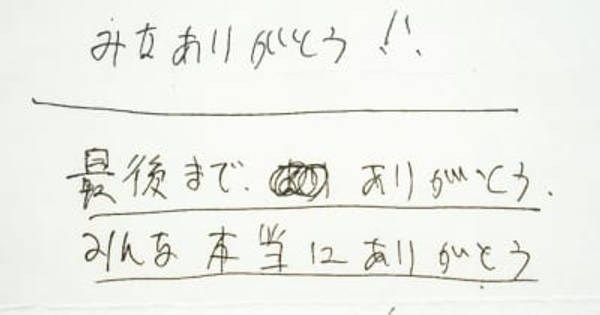 みなありがとう!!
最後まで. ありがとう.
みんな本当にありがとう